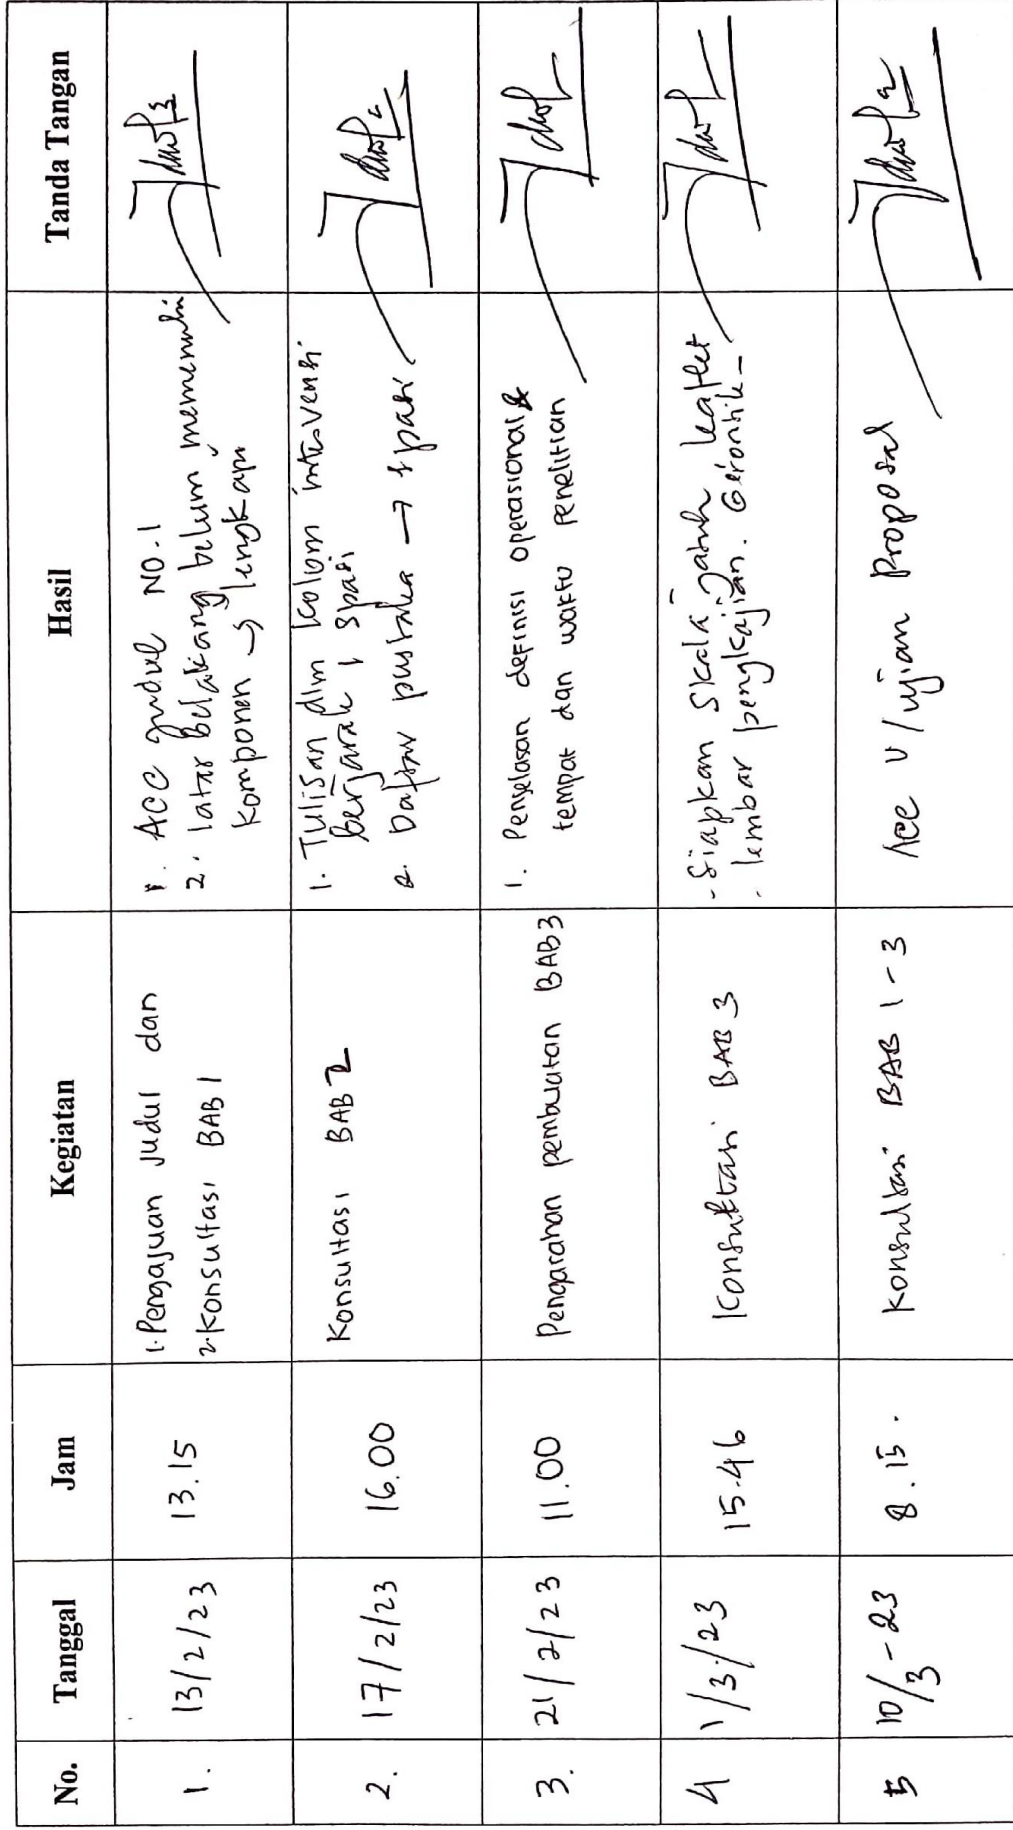 No. Tanggal Jam Kegiatan Hasil Tanda Tangan
1. 13/2/23 13.15
1. Pengajuan Judul dan
2. Konsultasi BAB 1
1. ACC judul NO.1
2. latar Belakang belum memenuhi
komponen → lengkapi
2. 17/2/23 16.00
Konsultasi BAB 2
1. Tulisan dlm kolom intervensi
berjarak 1 spasi
2. Daftar pustaka → 1 spasi
3. 21/2/23 11.00
Pengarahan pembuatan BAB 3
1. Penjelasan definisi operasional &
tempat dan waktu penelitian
4 1/3/23 15.46
Konsultasi BAB 3
- Siapkan skala jatuh leaflet
- lembar pengkajian. Gerontik -
5 10/3-23 8.15.
Konsultasi BAB 1-3
ACC U/ ujian proposal